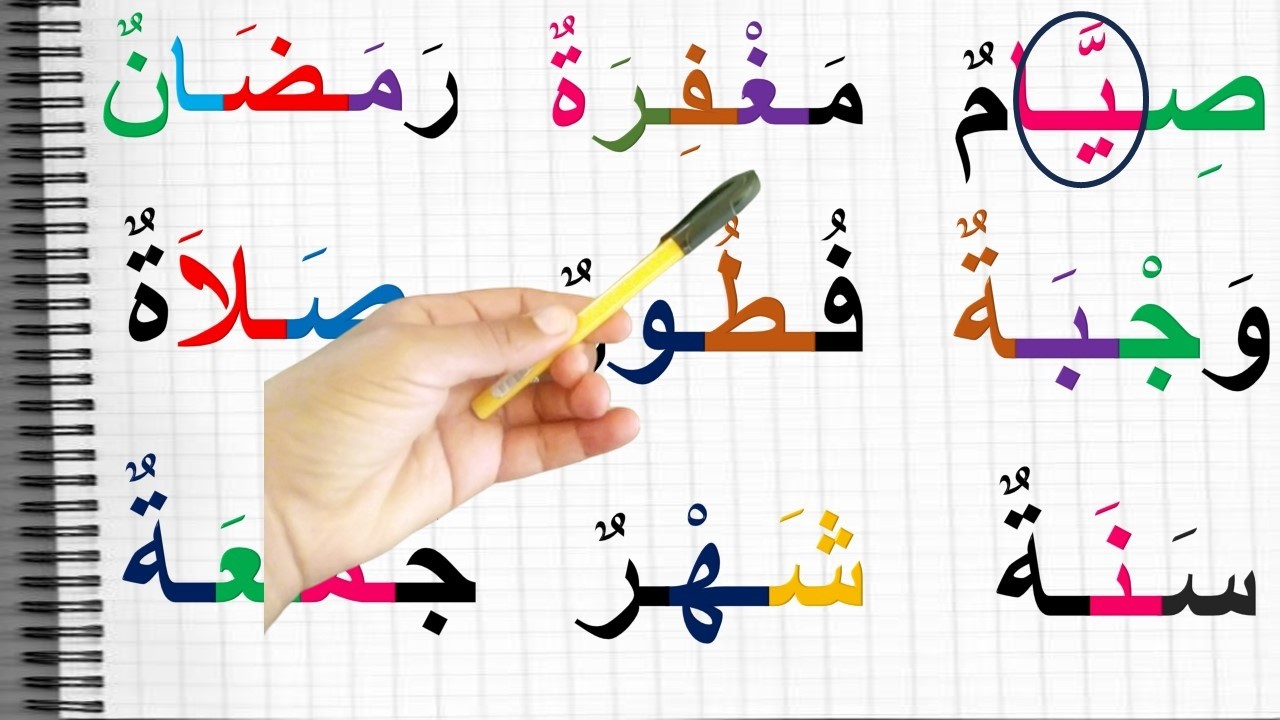 صِيَّامٌ مَغْفِرَةٌ رَمَضَانٌ
وَجْبَةٌ فُطُورٌ صَلَاةٌ
سَنَةٌ شَهْرٌ